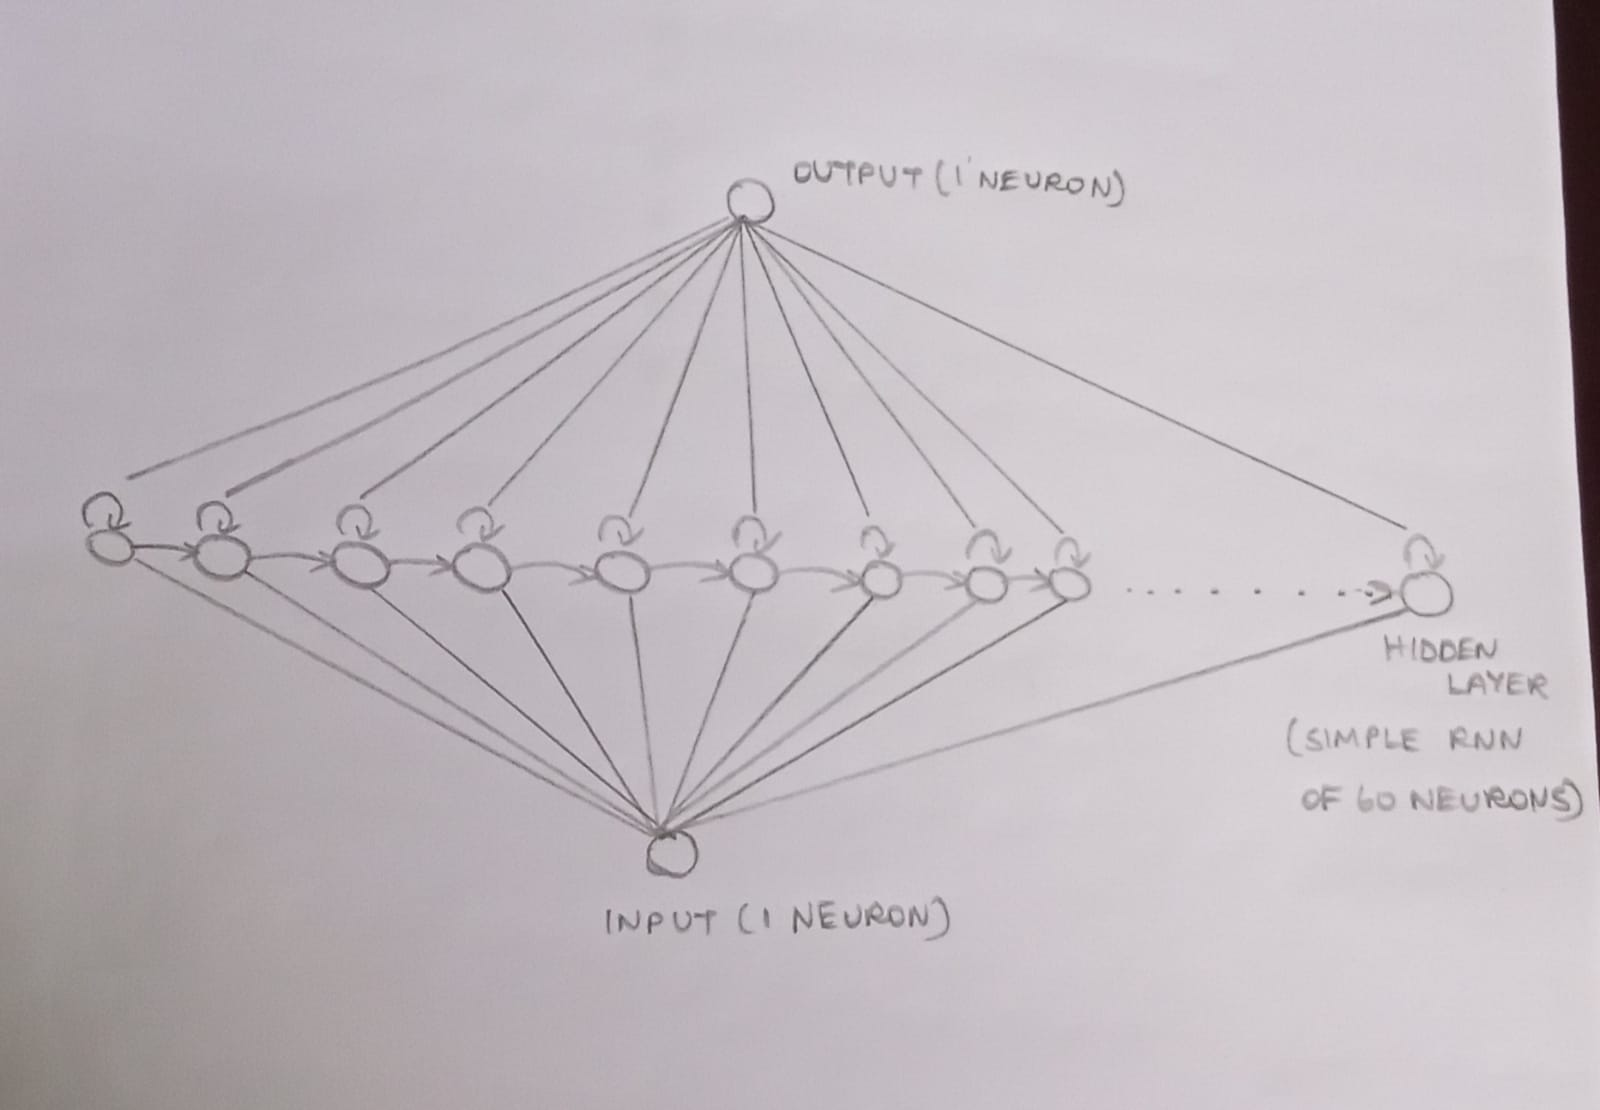 OUTPUT (1 NEURON)
HIDDEN
LAYER
(SIMPLE RNN
OF 60 NEURONS)
INPUT (1 NEURON)